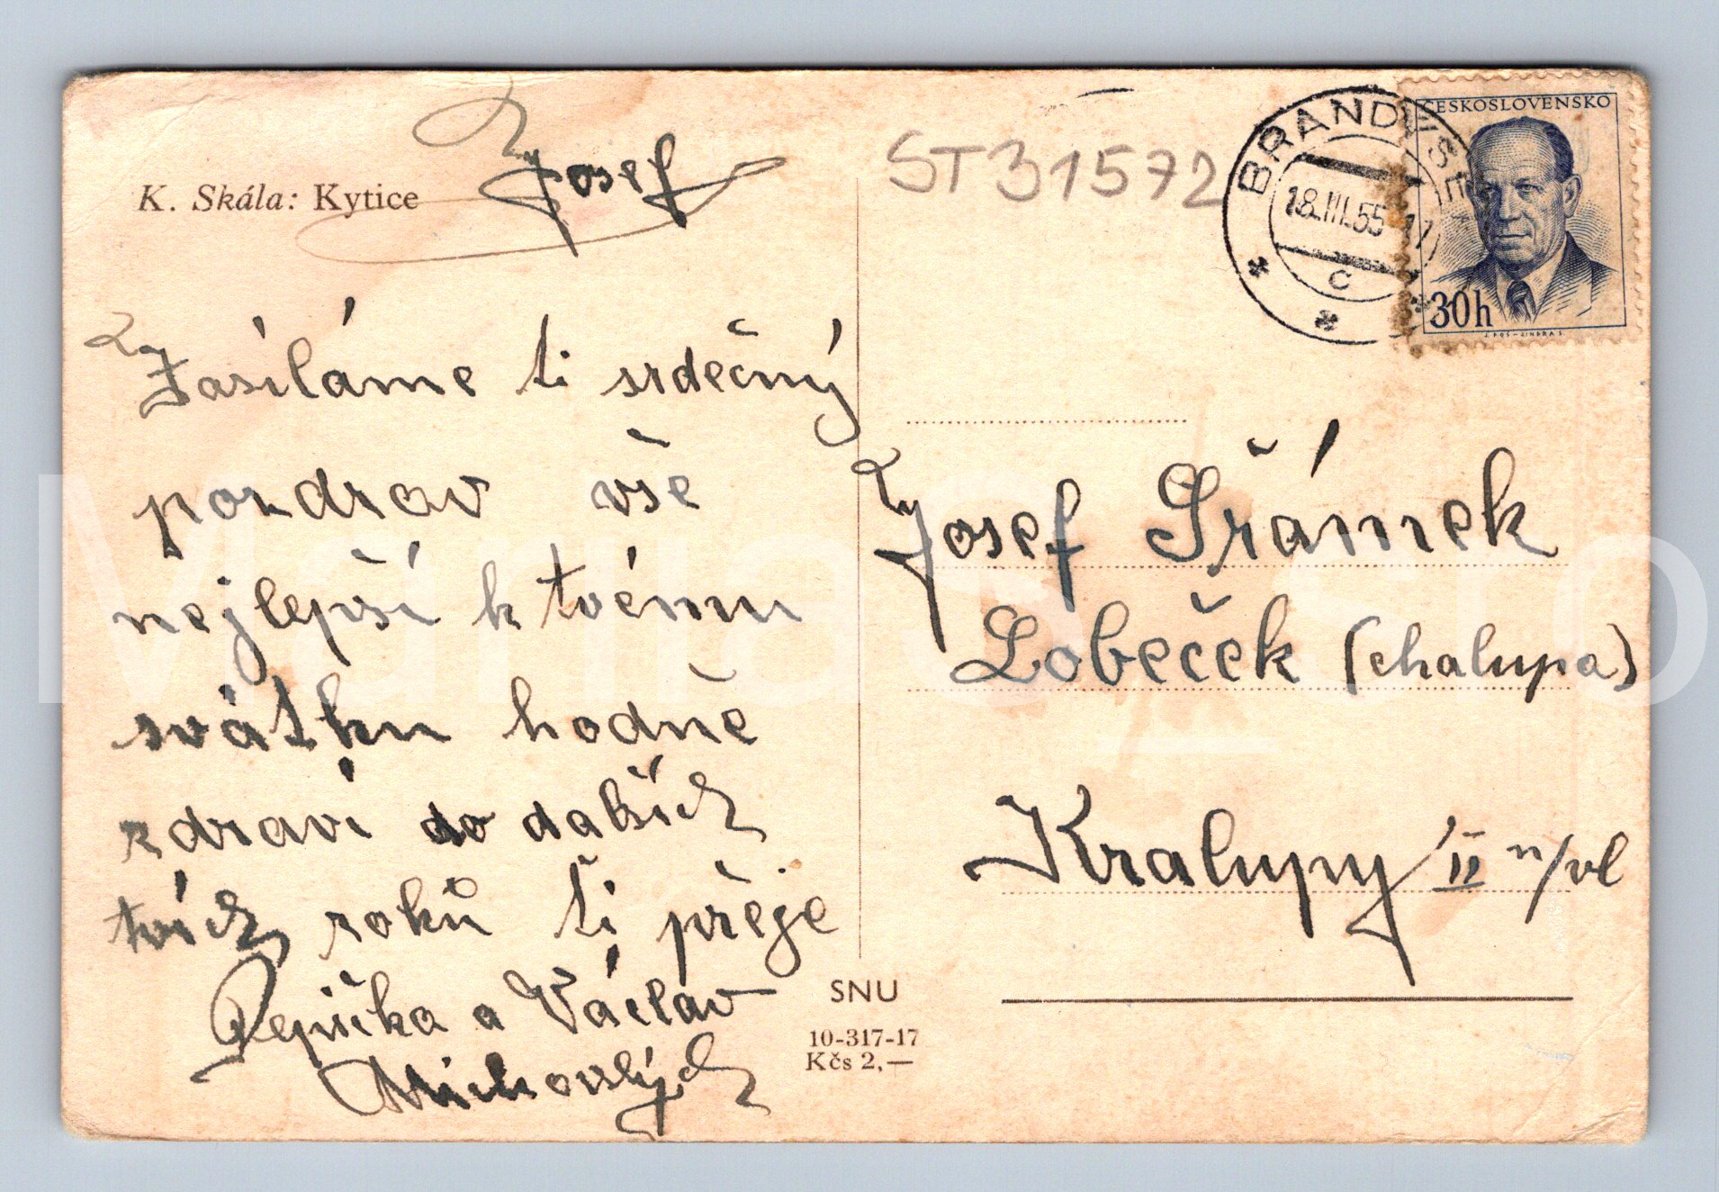 K. Skála: Kytice
Josef
Zasíláme ti srdečný
pozdrav vše
nejlepší k tvému
svátku hodně
zdraví do dalších
tvích roků ti přeje
Pepička a Václav
ST31572
BRANDÝSE
18.III.55-17
C
ČESKOSLOVENSKO
30h
Josef Šrámek
Lobeček (chalupa)
Kralupy II n/vl
SNU
10-317-17
Kčs 2,—